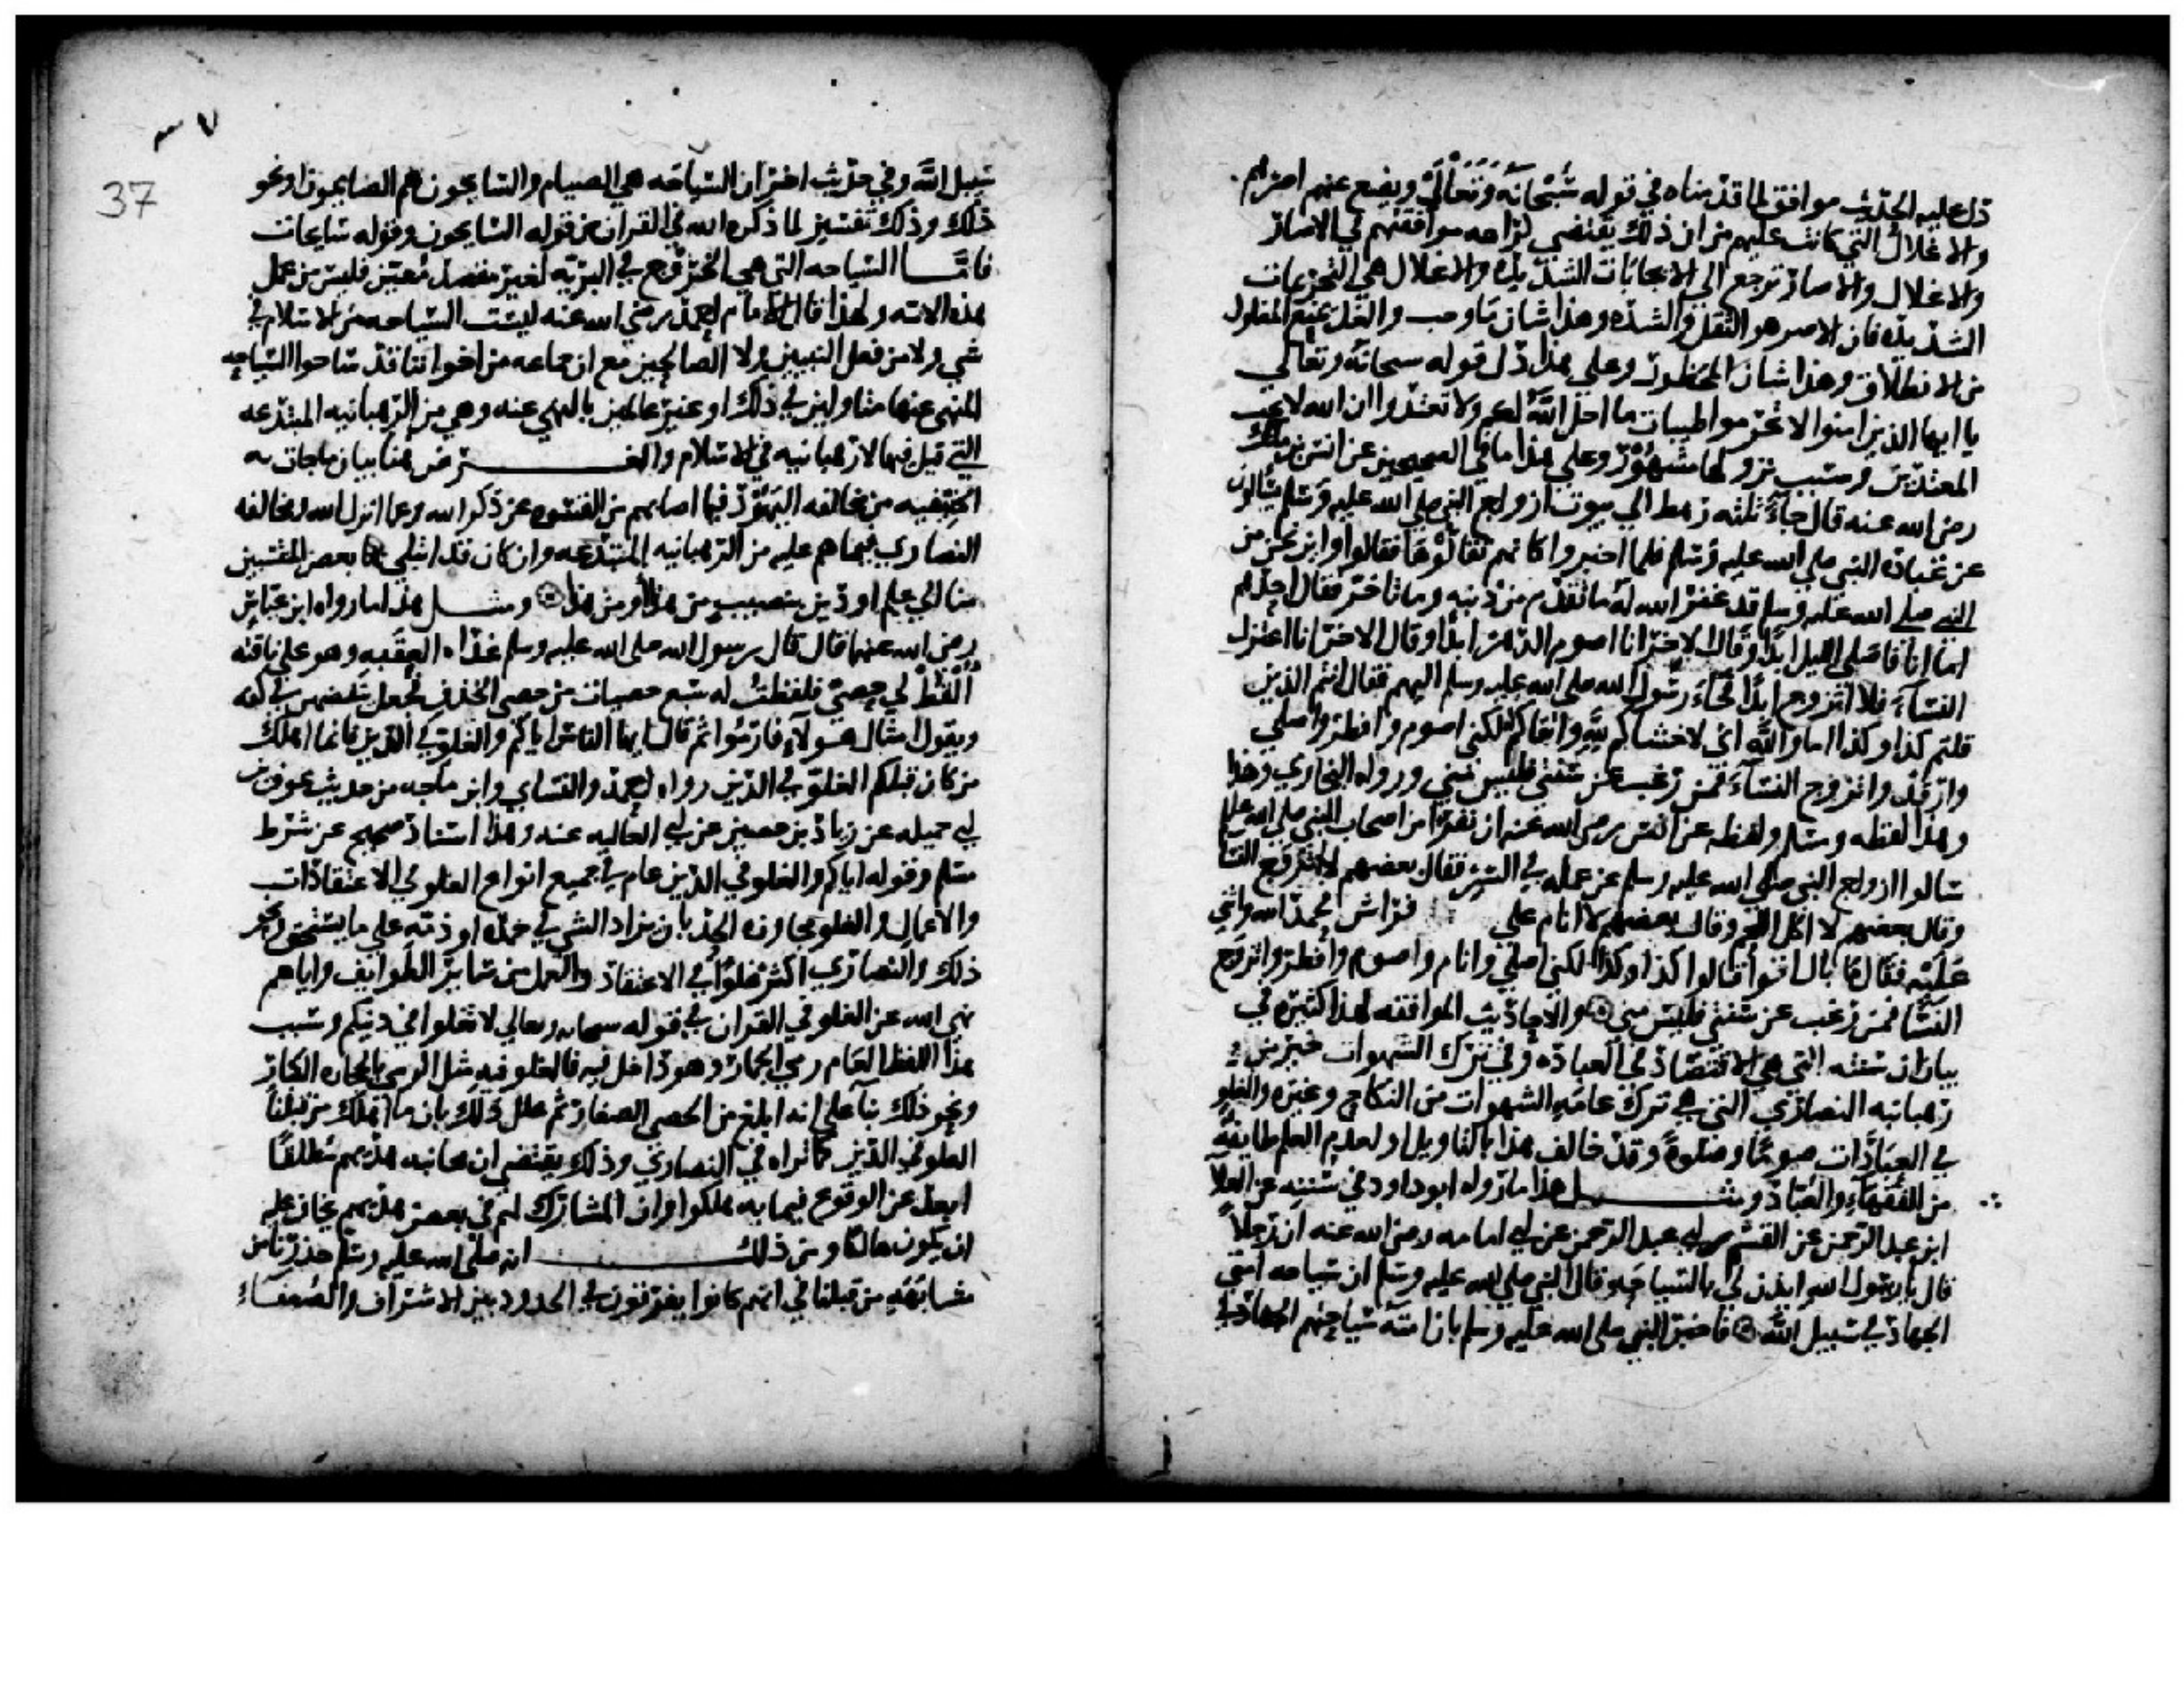 دل عليه الحديث موافق لما قدمناه في قوله سُبْحَانَه وَتَعَالَىٰ ويضع عنهم اصرهم
والاغلال التي كانت عليهم من ان ذلك يقتضي كراهه موافقتهم في الاصار
والاغلال والاصار ترجع الى الايجابات الشديده والاغلال هي التحريمات
الشديده فان الاصر هو الثقل والشده وهذا شان ما وجب والغل يمنع المغلول
من الانطلاق وهذا شان المحظور وعلى هذا دل قوله سبحانه وتعالى
يا ايها الذين امنوا لا تحرموا طيبات ما احل الله لكم ولا تعتدوا ان الله لا يحب
المعتدين وسبب نزولها مشهور وعلى هذا ما في الصحيحين عن انس بن ملك
رضى الله عنه قال جاء ثلثه رهط الى بيوت ازواج النبي صلى الله عليه وسلم يسالون
عن عباده النبي صلى الله عليه وسلم فلما اخبروا كانهم تقالوها فقالوا واين نحن من
النبي صلى الله عليه وسلم قد غفر الله له ما تقدم من ذنبه وما تاخر فقال احدهم
اما انا فاصلى الليل ابدا وقال الاخر انا اصوم الدهر ابدا وقال الاخر انا اعتزل
النساء فلا اتزوج ابدا فجاء رسول الله صلى الله عليه وسلم اليهم فقال انتم الذين
قلتم كذا وكذا اما والله اني لاخشاكم لله واتقاكم له لكني اصوم وافطر واصلي
وارقد واتزوج النساء فمن رغب عن سنتي فليس مني ورواه البخاري وهذا
وهذا لفظه ومسلم ولفظه عن انس رضى الله عنه ان نفرا من اصحاب النبي صلى الله عليه
سالوا ازواج النبي صلى الله عليه وسلم عن عمله في السر فقال بعضهم لا اتزوج النسا
وقال بعضهم لا اكل اللحم وقال بعضهم لا انام على فراش فحمد الله واثنى
عليه فقال ما بال اقوام قالوا كذا وكذا لكني اصلي وانام واصوم وافطر واتزوج
النسا فمن رغب عن سنتي فليس مني والاحاديث الموافقه لهذا كثيره في
بيان ان سنته التي هي الاقتصاد في العباده وفي ترك الشهوات خير من
رهبانيه النصارى التي هي ترك عامه الشهوات من النكاح وغيره والغلو
في العبادات صوما وصلوة وقد خالف هذا بالتاويل او لعدم العلم طايفة
من الفقهاء والعباد ومثـــل هذا ما رواه ابو داود في سننه عن العلا
ابن عبد الرحمن عن القسم ابى عبد الرحمن عن ابي امامه رضى الله عنه ان رجلاً
قال يا رسول الله ايذن لي بالسياحه وقال النبي صلى الله عليه وسلم ان سياحه امتي
الجهاد في سبيل الله فاخبر النبي صلى الله عليه وسلم بان امته سياحتهم الجهاد في
٣٧
37
سبيل الله وفي حديث اخر ان السياحه هي الصيام والسايحون هم الصايمون او نحو
ذلك وذلك تفسير لما ذكره الله في القران من قوله السايحون وقوله سايحات
فامـــا السياحه التي هي الخروج في البريه لغير مقصد معين فليس من عمل
هذه الامه ولهذا قال الامام احمد رضي الله عنه ليست السياحه من الاسلام في
شي ولا من فعل النبيين ولا الصالحين مع ان جماعه من اخواننا قد ساحوا السياحه
المنهي عنها متاولين في ذلك او غير عالمين بالنهي عنه وهي من الرهبانيه المبتدعه
التي قيل فيها لا رهبانيه في الاسلام والغـــرض هنا بيان ما جات به
الحنيفيه من مخالفه اليهود فيما اصابهم من القسوه عن ذكر الله وعما انزل الله ومخالفه
النصارى فيما هم عليه من الرهبانيه المبتدعه وان كان قد ابتلي بها بعض المنتسبين
منا الى علم او دين بنصيب من هذا ومن هذا ومثـــل هذا ما رواه ابن عباس
رضى الله عنهما قال قال رسول الله صلى الله عليه وسلم غداه العقبه وهو على ناقته
اُلْقُطْ لي حصى فلقطت له سبع حصيات من حصى الخذف فجعل ينفضهن في كفه
ويقول امثال هولاء فارموا ثم قال ايها الناس اياكم والغلو في الدين فانما اهلك
من كان قبلكم الغلو في الدين رواه احمد والنساي وابن ماجه من حديث عوف بن
ابي جميله عن زياد بن حصين عن ابي العاليه عنه وهذا اسناد صحيح على شرط
مسلم وقوله اياكم والغلو في الدين عام في جميع انواع الغلو في الاعتقادات
والاعمال والغلو مجاوزه الحد بان يزاد الشي في حمده او ذمه على ما يستحق ونحو
ذلك والنصارى اكثر غلوا في الاعتقاد والعمل من ساير الطوايف واياهم
نهى الله عن الغلو في القران في قوله سبحانه وتعالى لا تغلوا في دينكم وسبب
هذا اللفظ العام رمي الجمار وهو داخل فيه فالغلو فيه مثل الرمي بالحجاره الكبار
ونحو ذلك بناء على انه ابلغ من الحصى الصغار ثم علل ذلك بان ما اهلك من قبلنا
الغلو في الدين كما تراه في النصارى وذلك يقتضي ان مجانبه هديهم مطلقا
ابعد عن الوقوع فيما به هلكوا وان المشارك لهم في بعض هديهم يخاف عليه
ان يكون هالكا ومن ذلك ـــــ انه صلى الله عليه وسلم حذرنا من
مشابهه من قبلنا في انهم كانوا يفرقون في الحدود بين الاشراف والضعفاء